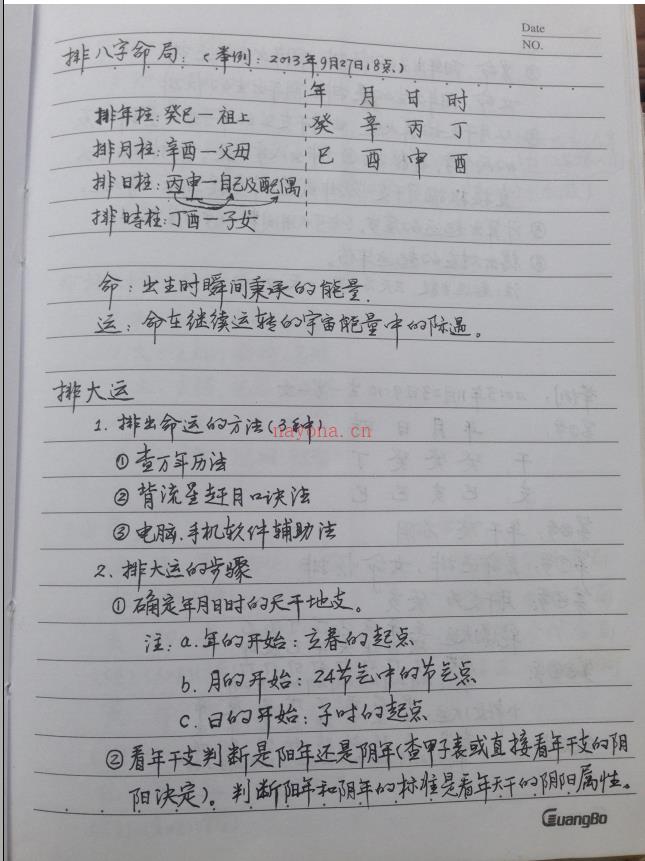 Date
NO.
排八字命局：（举例：2013年9月27日18点）
年 月 日 时
排年柱：癸巳—祖上 癸 辛 丙 丁
排月柱：辛酉—父母 巳 酉 申 酉
排日柱：丙申—自己及配偶
排時柱：丁酉—子女
命：出生时瞬间秉承的能量.
运：命在继续运转的宇宙能量中的际遇。
排大运
1. 排出命运的方法（3种）
nayona.cn
①查万年历法
②背流星赶月口诀法
③电脑.手机软件辅助法
2. 排大运的步骤
①确定年月日时的天干地支。
注：a.年的开始：立春的起点
b. 月的开始：24节气中的节气点
c. 日的开始：子时的起点
②看年干支判断是阳年还是阴年（查甲子表或直接看年干支的阴
阳决定）。判断阳年和阴年的标准是看年天干的阴阳属性。
GuangBo